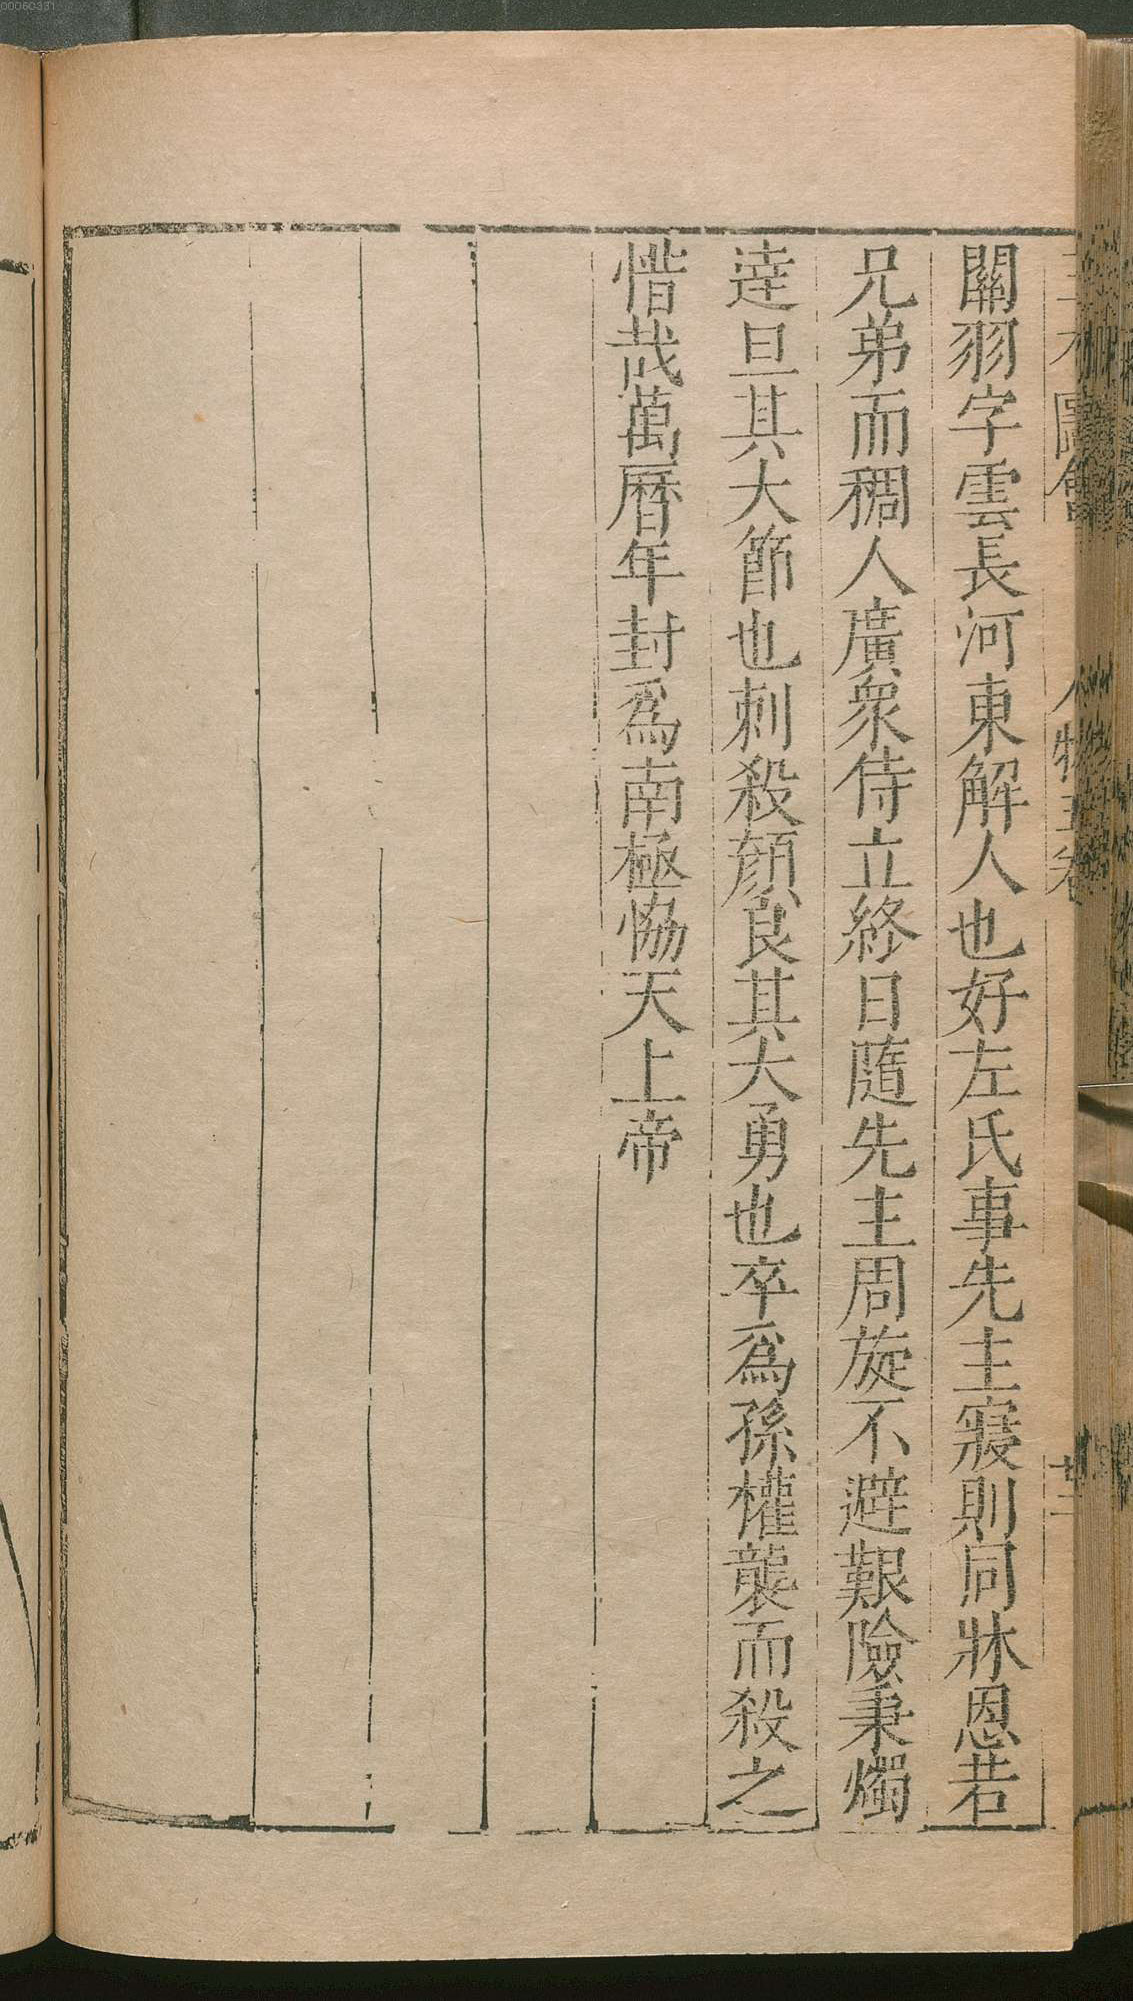 00060331
三才圖會 人物五卷 廿二
關羽字雲長河東解人也好左氏事先主寢則同牀恩若
兄弟而稠人廣衆侍立終日隨先主周旋不避艱險秉燭
達旦其大節也刺殺顔良其大勇也卒爲孫權襲而殺之
惜哉萬曆年封爲南極恊天上帝